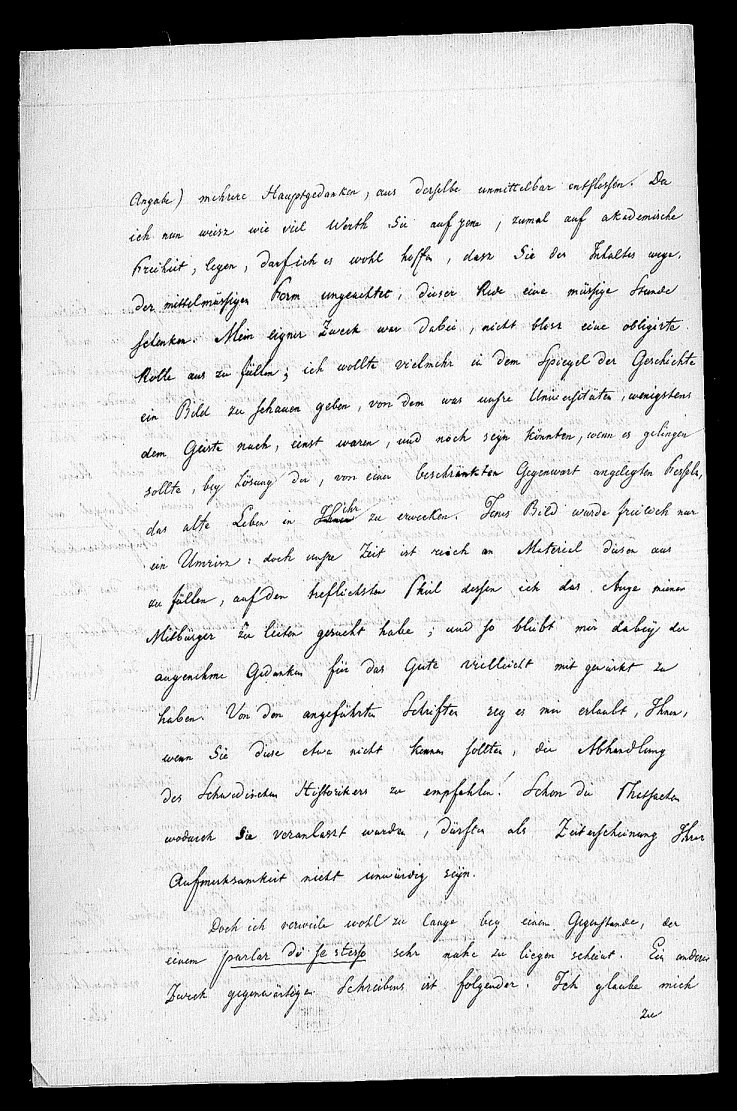 Angabe) mehrere Hauptgedanken, aus derselbe unmittelbar entflossen. Da
ich nun weisz wie viel Werth Sie auf jene, zumal auf akademische
Freiheit, legen, darf ich es wohl hoffen, dasz Sie des Inhaltes wege,
der mittelmässigen Form ungeachtet, dieser Rede eine müssige Stunde
schenken. Mein eigner Zweck war dabei, nicht blosz eine obligirte
Rolle aus zu füllen; ich wollte vielmehr in dem Spiegel der Geschichte
ein Bild zu schauen geben, von dem was unsre Universitäten, wenigstens
dem Geiste nach, einst waren, und noch seÿn könnten, wenn es gelingen
sollte, beÿ Lösung der, von einer beschränkten Gegenwart angelegten Fesseln,
das alte Leben in ihr zu erwecken. Jenes Bild wurde freilich nur
ein Umrisz: doch unsre Zeit ist reich an Material diesen aus
zu füllen, auf den treflichsten Theil dessen ich das Auge meiner
Mitbürger zu leiten gesucht habe; und so bleibt mir dabeÿ der
angenehme Gedanken für das Gute vielleicht mit gewirkt zu
haben. Von den angeführten Schriften seÿ es mir erlaubt, Ihnen,
wenn Sie diese etwa nicht kennen sollten, die Abhandlung
des Schwedischen Historikers zu empfehlen! Schon die Thatsachen
wodurch Sie veranlaszt wurden, dürften als Zeiterscheinung Ihrer
Aufmerksamkeit nicht unwürdig seÿn.
Doch ich verweile wohl zu lange beÿ einem Gegenstande, der
einem parlar di se stesso sehr nahe zu liegen scheint. Ein anderer
Zweck gegenwärtigen Schreibens ist folgender. Ich glaube mich
zu